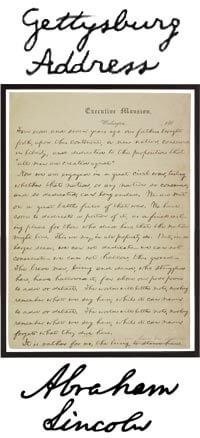 Gettysburg
Address
Executive Mansion,
Washington, , 186
Four score and seven years ago our fathers brought
forth, upon this continent, a new nation, conceived
in liberty, and dedicated to the proposition that
"all men are created equal"
Now we are engaged in a great civil war, testing
whether that nation, or any nation so conceived,
and so dedicated, can long endure. We are met
on a great battle field of that war. We have
come to dedicate a portion of it, as a final rest-
ing place for those who died here, that the nation
might live. This we may, in all propriety do. But, in a
larger sense, we can not dedicate — we can not
consecrate — we can not hallow, this ground —
The brave men, living and dead, who struggled
here, have hallowed it, far above our poor power
to add or detract. The world will little note, nor long
remember what we say here; while it can never
to add or detract. The world will little note, nor long
remember what we say here; while it can never
forget what they did here.
It is rather for us, the living, to stand here,
Abraham
Lincoln